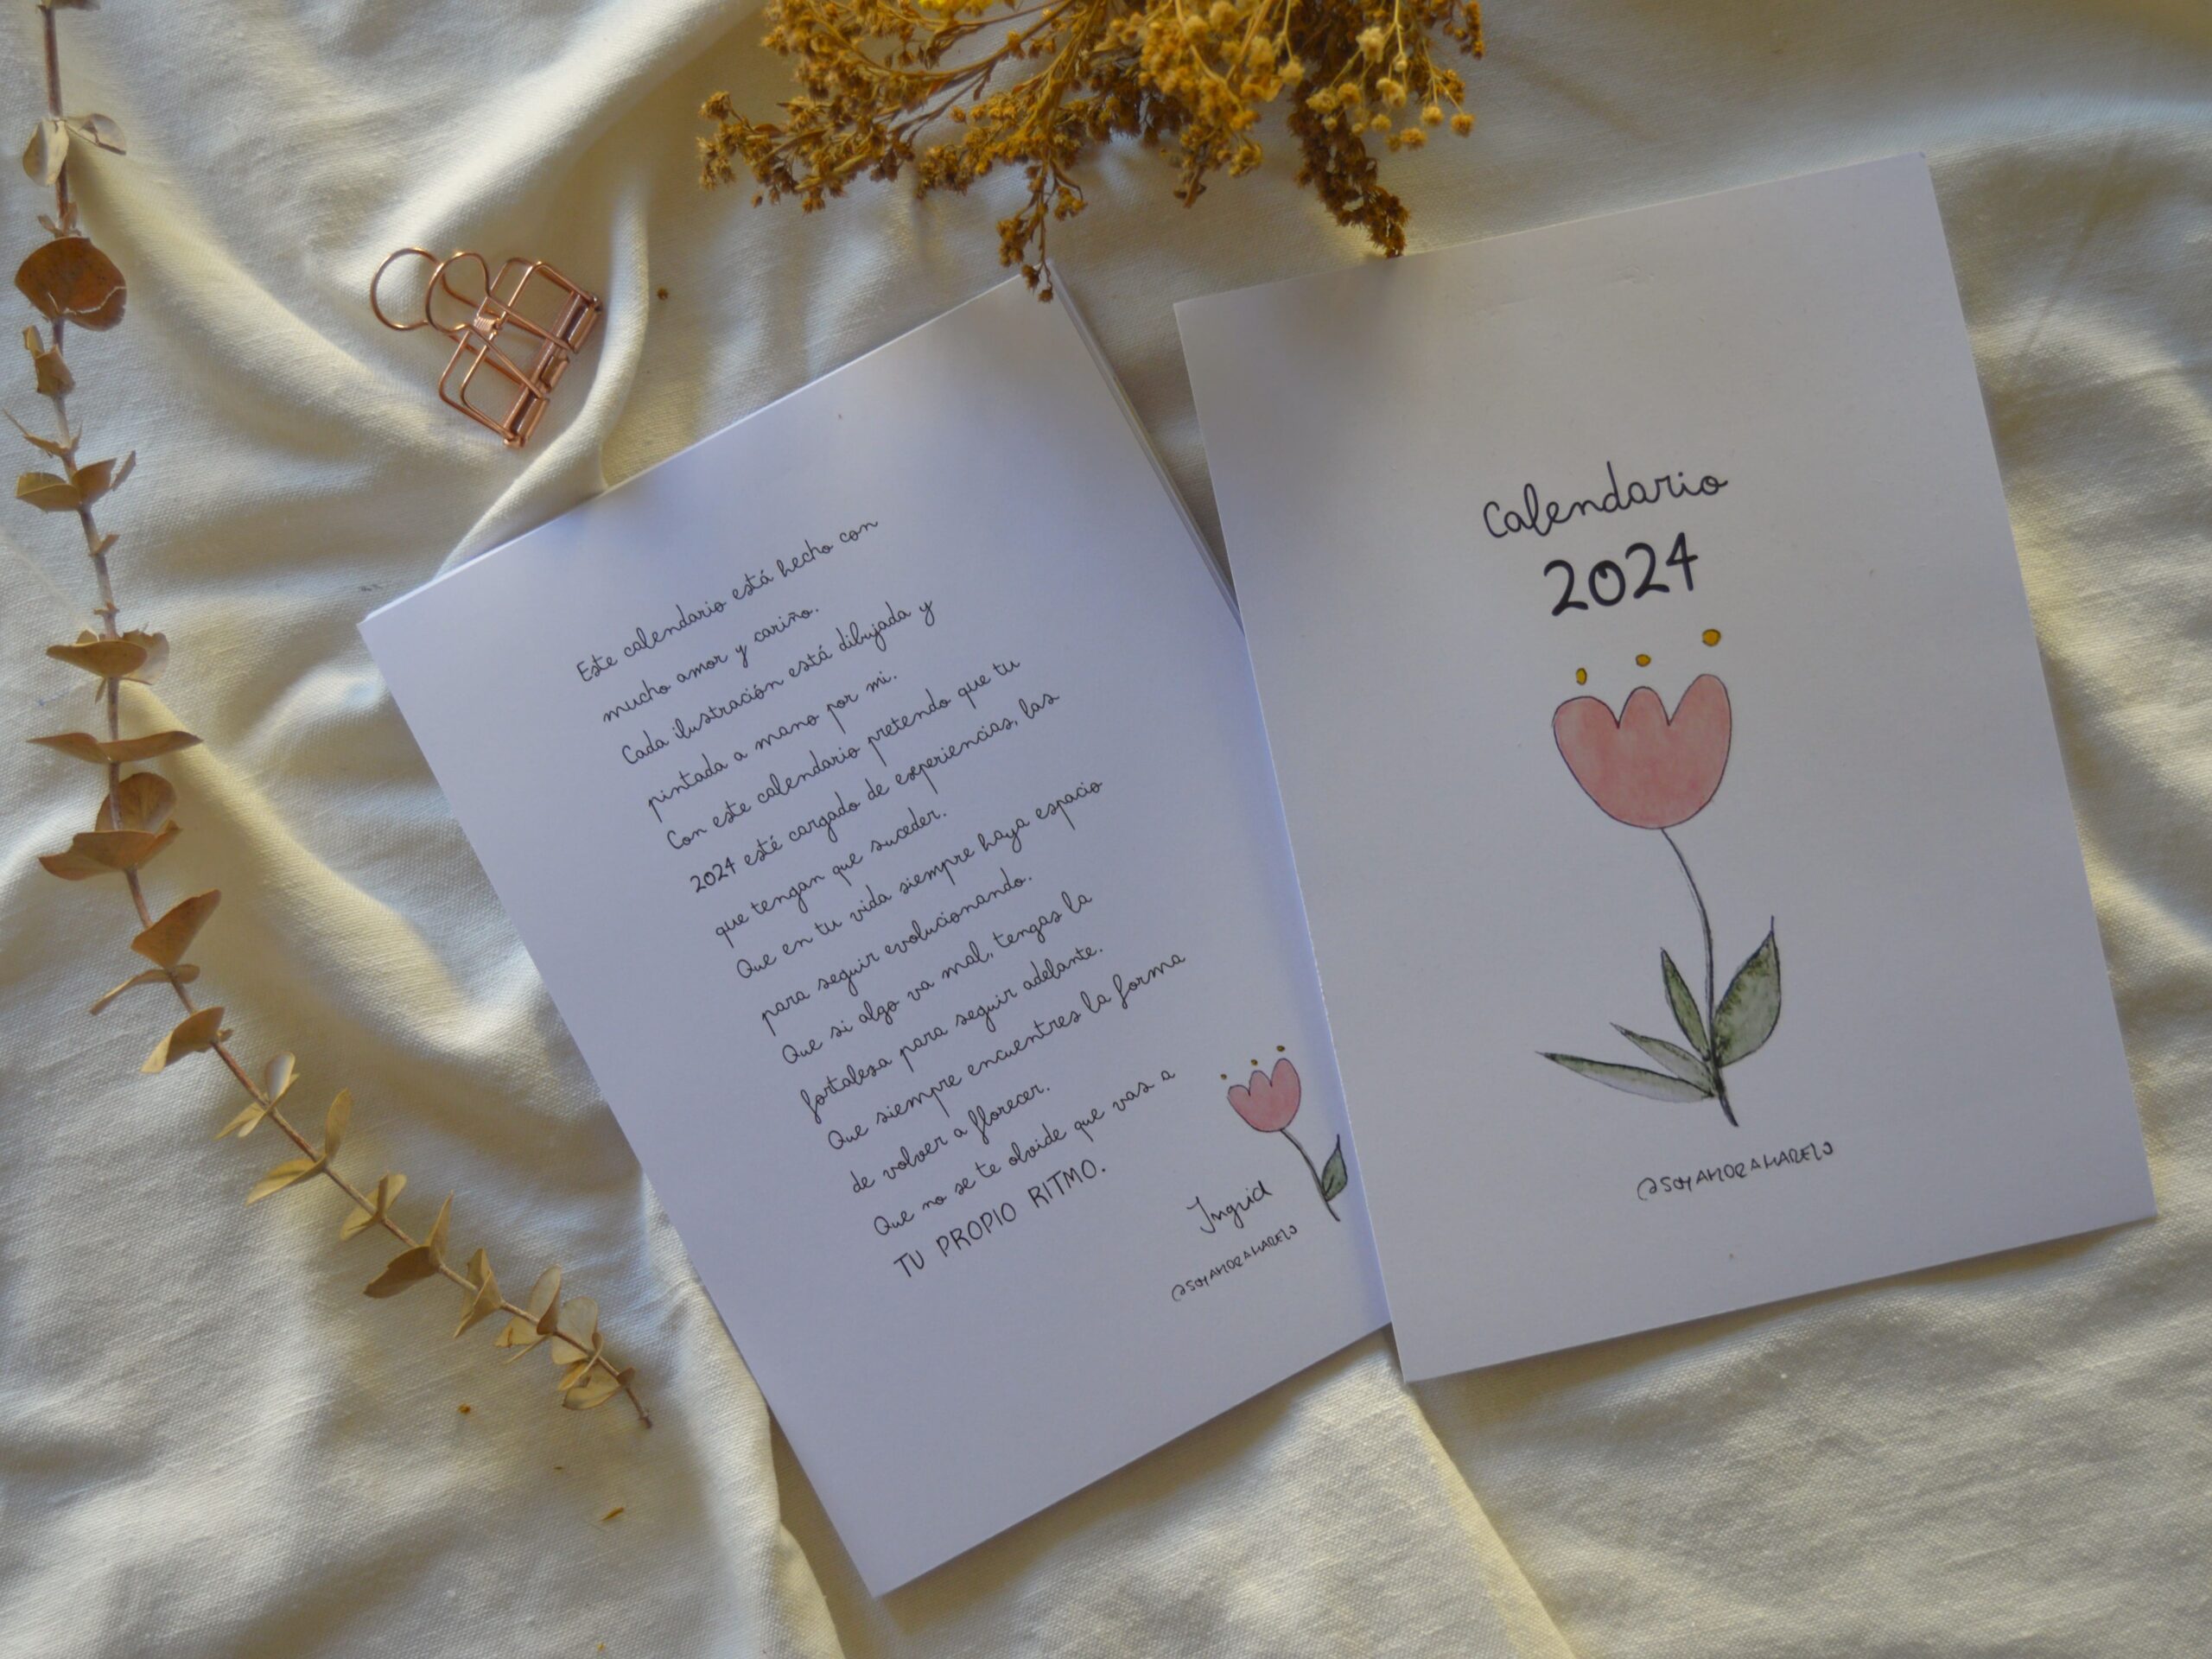 Este calendario está hecho con
mucho amor y cariño.
Cada ilustración está dibujada y
pintada a mano por mi.
Con este calendario pretendo que tu
2024 esté cargado de experiencias, las
que tengan que suceder.
Que en tu vida siempre haya espacio
para seguir evolucionando.
Que si algo va mal, tengas la
fortaleza para seguir adelante.
Que siempre encuentres la forma
de volver a florecer.
Que no se te olvide que vas a
TU PROPIO RITMO.
Ingrid
@SOYAMORAMARELO
Calendario
2024
@SOYAMORAMARELO